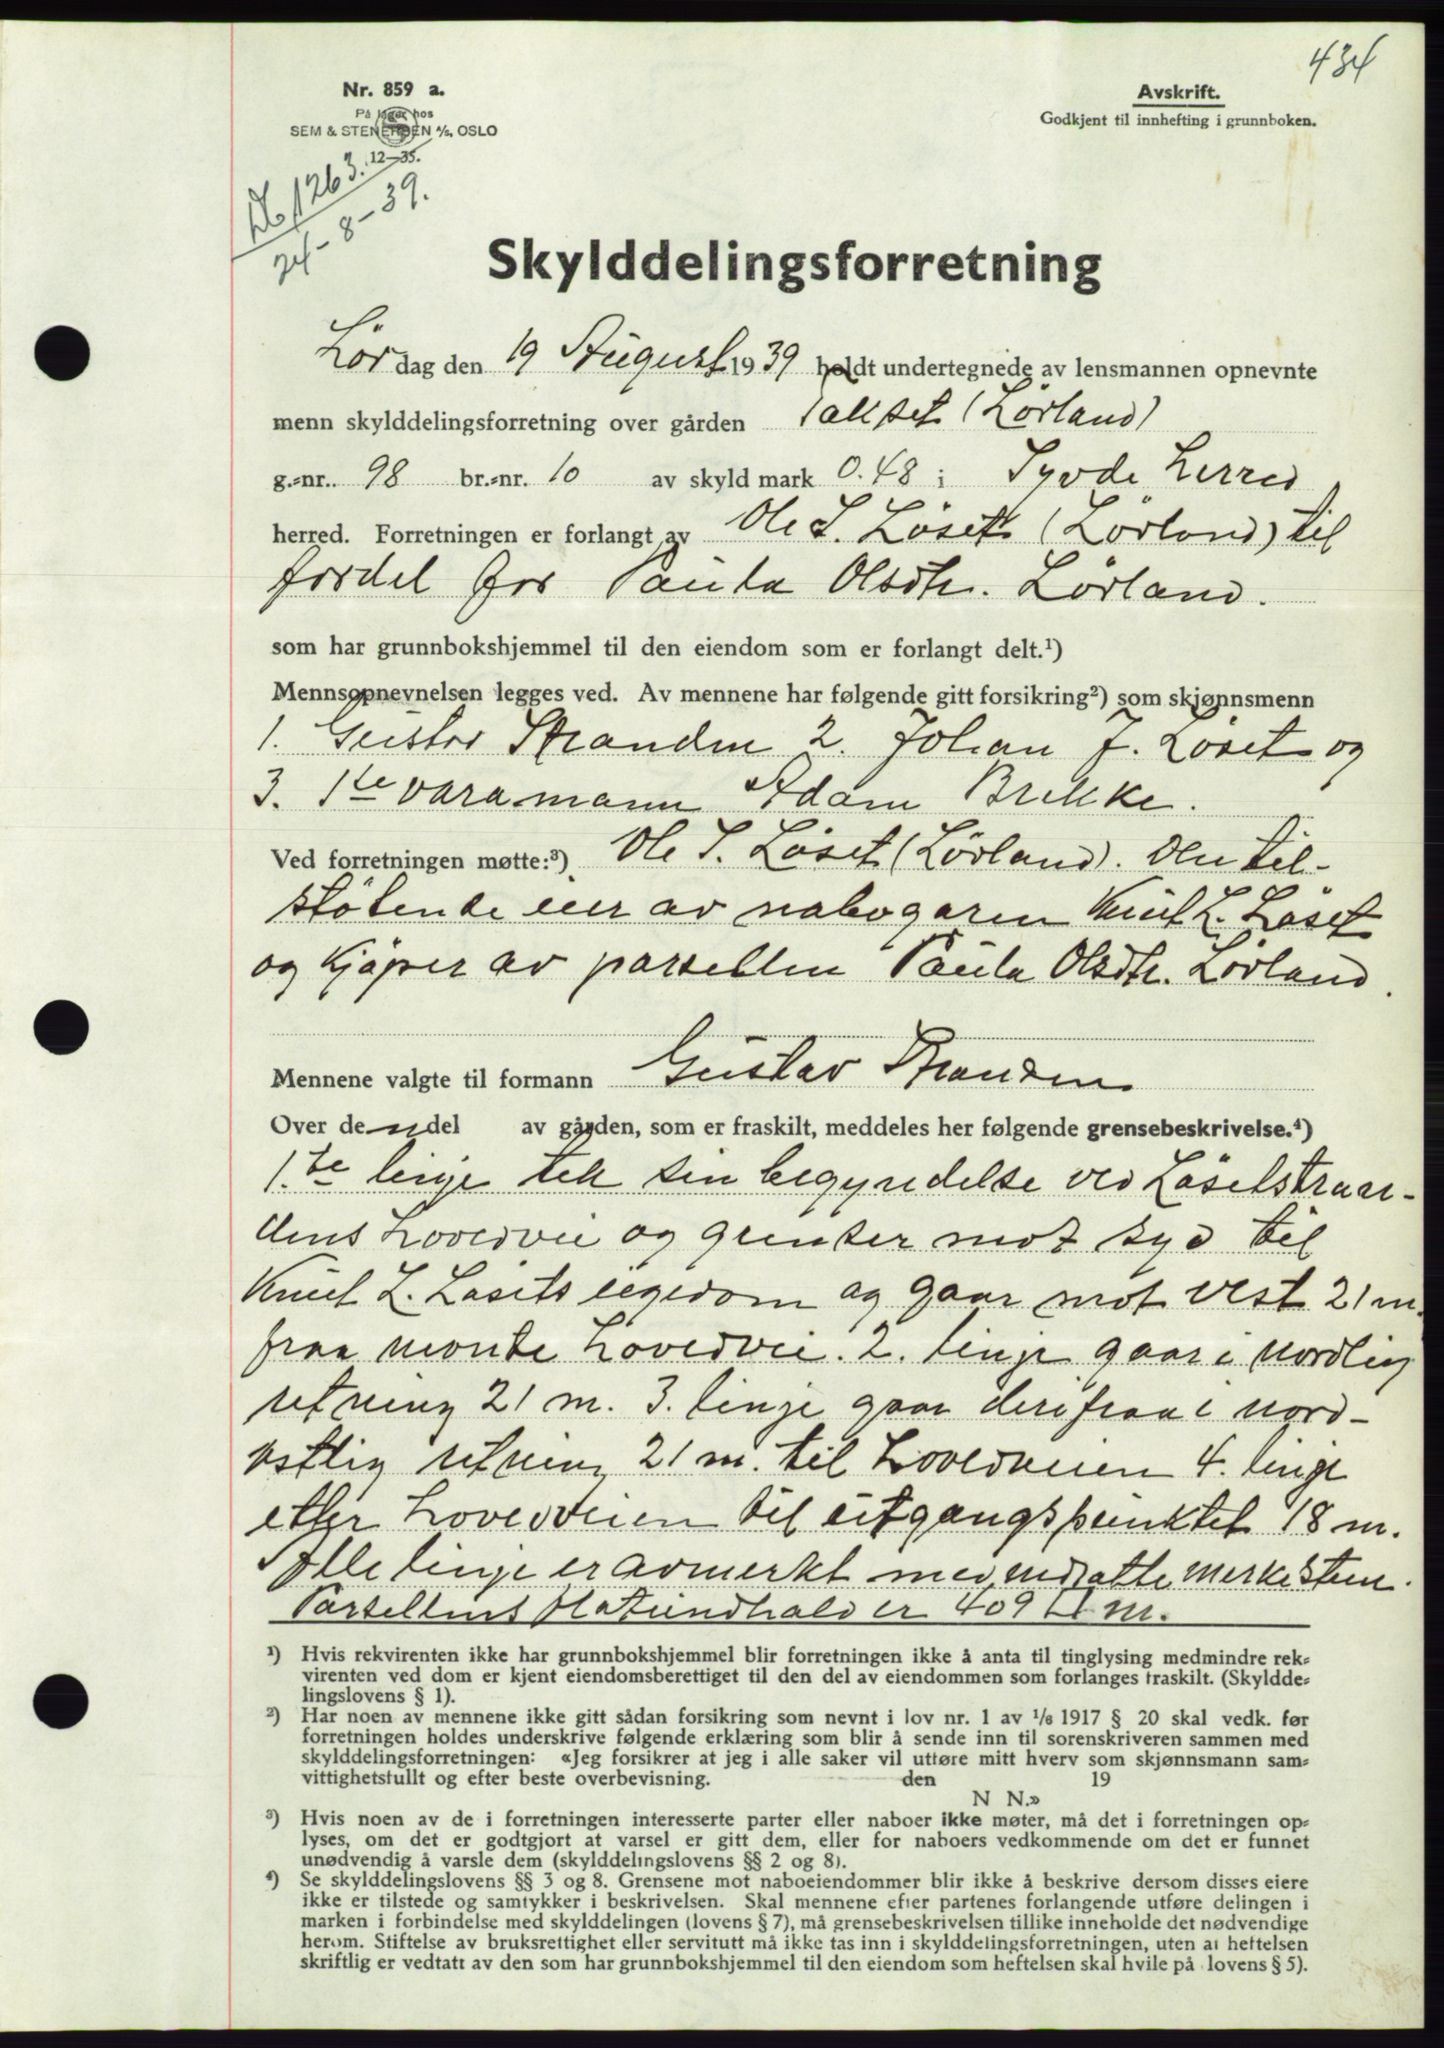 434
Nr. 859 a.
På lager hos
SEM & STENERSEN A/S, OSLO
12—35.
Avskrift.
Godkjent til innhefting i grunnboken.
1263.
24-8-39.
Skylddelingsforretning
Lördag den 19 August 1939 holdt undertegnede av lensmannen opnevnte
menn skylddelingsforretning over gården (Lörland)
g.-nr. 98 br.-nr. 10 av skyld mark 0.48 i Syvde Herred
herred. Forretningen er forlangt av Ole S. Löset (Lörland) til
fordel for Paula Olsdtr. Lörland.
som har grunnbokshjemmel til den eiendom som er forlangt delt.¹)
Mennsopnevnelsen legges ved. Av mennene har følgende gitt forsikring²) som skjønnsmenn
1. Gustav Stranden 2. Johan J. Löset og
3. 1te varamann Adam Brekke.
Ved forretningen møtte:³) Ole S. Löset (Lörland). Den til-
stötende eier av nabogaren Knut L. Löset
og kjöper av parsellen Paula Olsdtr. Lörland.
Mennene valgte til formann Gustav Stranden
Over den del av gården, som er fraskilt, meddeles her følgende grensebeskrivelse.⁴)
1.te linje tek sin begyndelse ved Lösetstran-
dens hovedvei og grenser mot syd til
Knut L. Løsets eigedom og gaar mot vest 21 m.
fraa hovedvei. 2. linje gaar i nordlig
retning 21 m. 3. linje gaar derifraa i nord-
østlig retning 21 m. til hovedveien 4. linje
etter hovedveien til utgangspunktet 18 m.
Alle linje er avmerkt med nedsatte merkestein.
Parsellens flateindhald er 409 □ m.
¹) Hvis rekvirenten ikke har grunnbokshjemmel blir forretningen ikke å anta til tinglysing medmindre rek-
virenten ved dom er kjent eiendomsberettiget til den del av eiendommen som forlanges fraskilt. (Skyldde-
lingslovens § 1).
²) Har noen av mennene ikke gitt sådan forsikring som nevnt i lov nr. 1 av 1/6 1917 § 20 skal vedk. før
forretningen holdes underskrive følgende erklæring som blir å sende inn til sorenskriveren sammen med
skylddelingsforretningen: «Jeg forsikrer at jeg i alle saker vil utføre mitt hverv som skjønnsmann sam-
vittighetsfullt og efter beste overbevisning. den 19
N N.»
³) Hvis noen av de i forretningen interesserte parter eller naboer ikke møter, må det i forretningen op-
lyses, om det er godtgjort at varsel er gitt dem, eller for naboers vedkommende om det er funnet
unødvendig å varsle dem (skylddelingslovens §§ 2 og 8).
⁴) Se skylddelingslovens §§ 3 og 8. Grensene mot naboeiendommer blir ikke å beskrive dersom disses eiere
ikke er tilstede og samtykker i beskrivelsen. Skal mennene efter partenes forlangende utføre delingen i
marken i forbindelse med skylddelingen (lovens § 7), må grensebeskrivelsen tillike inneholde det nødvendige
herom. Stiftelse av bruksrettighet eller servitutt må ikke tas inn i skylddelingsforretningen, uten at heftelsen
skriftlig er vedtatt av den som har grunnbokshjemmel til den eiendom som heftelsen skal hvile på lovens § 5).